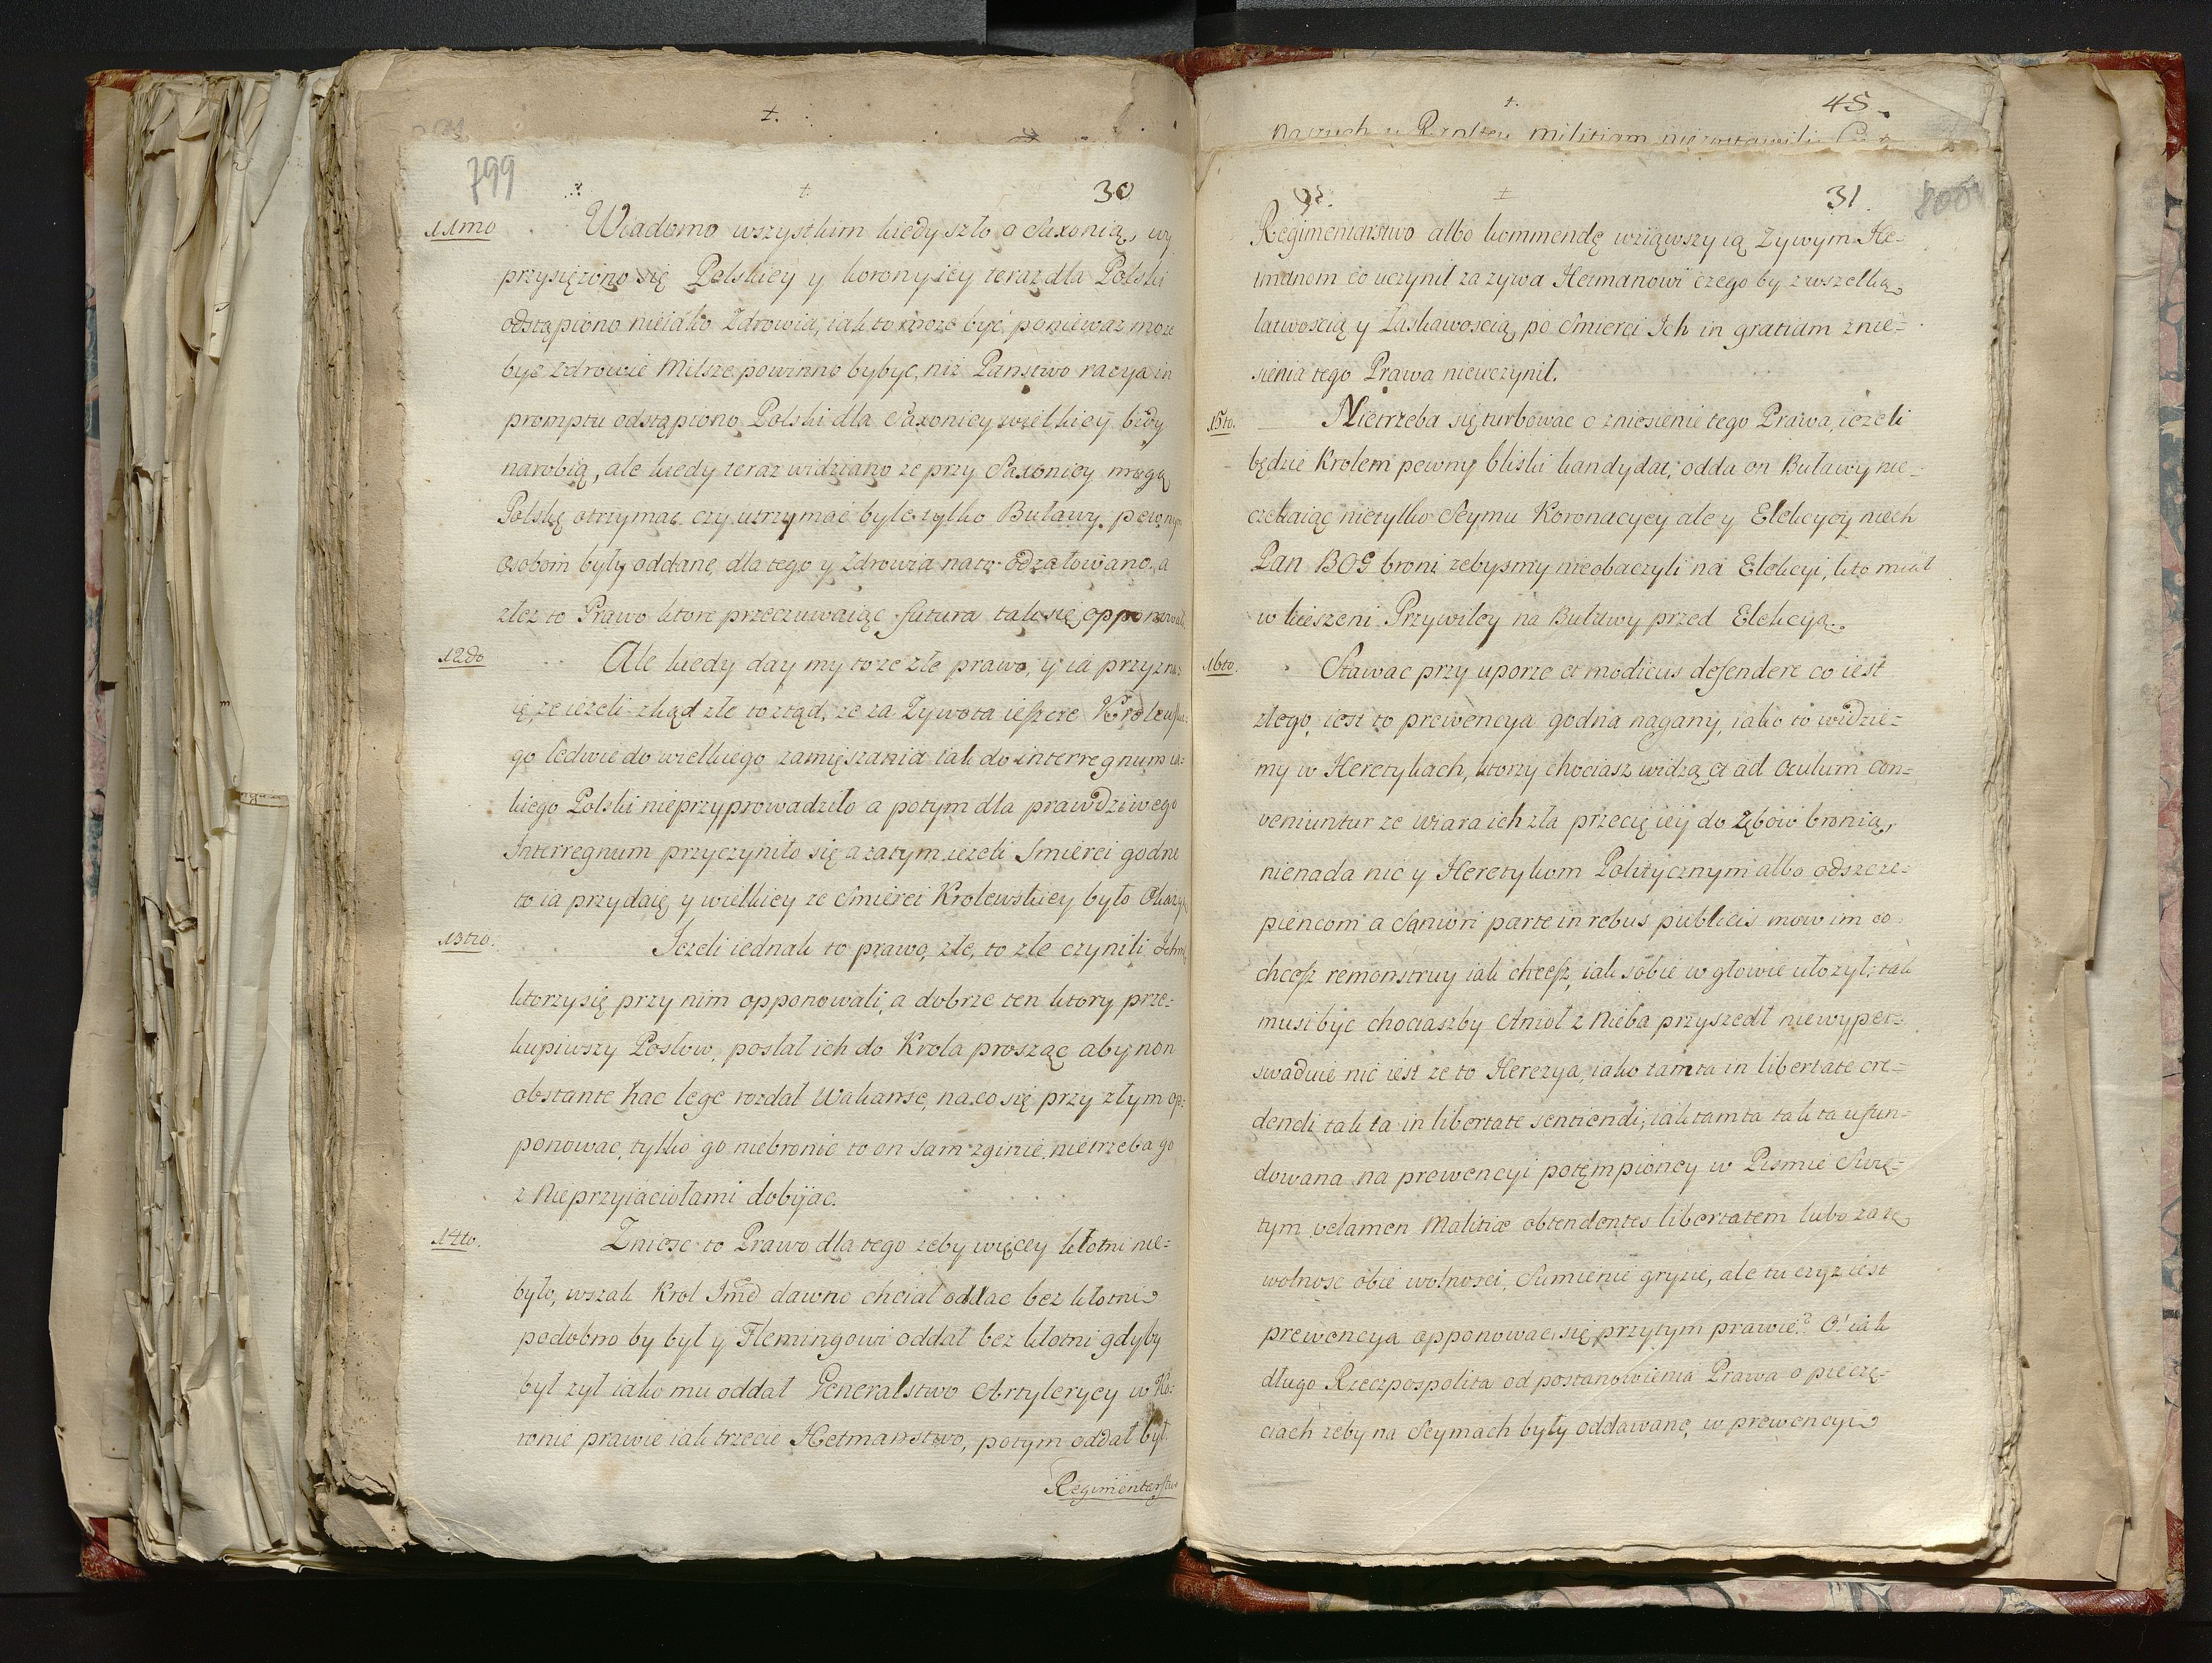 799
30
11mo Wiadomo wszystkim kiedy szło o Saxonią, wy
przysięzono się Polskiey y korony iey teraz dla Polski
odstąpiono nieiako Zdrowia, iak to może być, ponieważ może
być zdrowie milsze powinno bybyc, niż Panstwo racya in
promptu odstąpiono Polski dla Saxoniey wielkiey bidy
narobią, ale kiedy teraz widziano ze przy Saxoniey mogą
Polskę otrzymać czy utrzymać byle tylko Buławy pewnym
osobom były oddane, dla tego y Zdrowia na to odzałowano, a
złez to Prawo ktore przeczuwaiąc futura tak się opponował.
12do Ale kiedy day my to ze złe prawo, y ia przyzna-
ię, ze iezeli zkąd złe to ztąd, ze za Zywota ieszcze Krolewskie-
go ledwie do wielkiego zamięszania iak do interregnum ia-
kiego Polski nieprzyprowadziło a potym dla prawdziwego
Interregnum przyczyniło się a zatym iezeli Smierci godne
to ia przydaię y wielkiey ze Smierci Krolewskiey było Okazyą
13tio. Iezeli iednak to prawo złe, to zle czynili Ichm
ktorzy się przy nim opponowali, a dobrze ten ktory prze-
kupiwszy Posłow, posłał ich do Krola prosząc aby non
obstante hac lege rozdał Wakanse, na co się przy złym op-
ponowac, tylko go niebronic to on sam zginie, nietrzeba go
z Nieprzyiaciołami dobijac.
14to. Zniesc to Prawo dla tego zeby więcey kłotni nie-
było, wszak Krol Jmć dawno chciał oddac bez kłotni
podobno by był y Flemingowi oddał bez kłotni gdyby
był zył iako mu oddał Generalstwo Artyleryey w Ko-
ronie prawie iak trzecie Hetmanstwo, potym oddał był.
Regimentarstwo
45.
naszych u Rzpltey militiam niezostawili
31.
800
Regimentarstwo albo kommendę wziąwszy ią Zywym He-
tmanom co uczynił za zywa Hetmanowi czego by z wszelką
łatwoscią y Łaskawoscią po Smierci Ich in gratiam znie-
sienia tego Prawa nieuczynił.
15to. Nietrzeba się turbowac o zniesienie tego Prawa, iezeli
będzie Krolem pewny bliski kandydat, odda on Buławy nie-
czekaiąc nietylko Seymu Koronacyey ale y Elekcyey niech
Pan BOG broni zebysmy nieobaczyli na Elekcyi, kto miał
w kieszeni Przywiley na Buławy przed Elekcyą.
16to. Stawac przy uporze et modicus defendere co iest
złego, iest to prewencya godna nagany, iako to widzie-
my w Heretykach, ktorzy chociasz widzą et ad Oculum con-
veniuntur ze wiara ich zła przecię iey do Zębow bronią,
nienada nic y Heretykom Politycznym albo odszcze-
piencom a saniori parte in rebus publicis mow im co
chcesz remonstruy iak chcesz, iak sobie w głowie ułozył, tak
musi być chociaszby Anioł z Nieba przyszedł niewyper-
swaduie nic iest ze to Herezya, iako tamta in libertate cre-
dendi tak ta in libertate sentiendi; iak tamta tak ta ufun-
dowana na prewencyi potęmpioney w Pismie Swię-
tym velamen Malitiæ obtendentes libertatem lubo za tę
wolnosc obie wolnosci, Sumienie gryzie, ale tu czyz iest
prewencya opponowac się przy tym prawie? O! iak
długo Rzeczpospolita od postanowienia Prawa o pieczę-
ciach zeby na Seymach były oddawane, w prewencyi